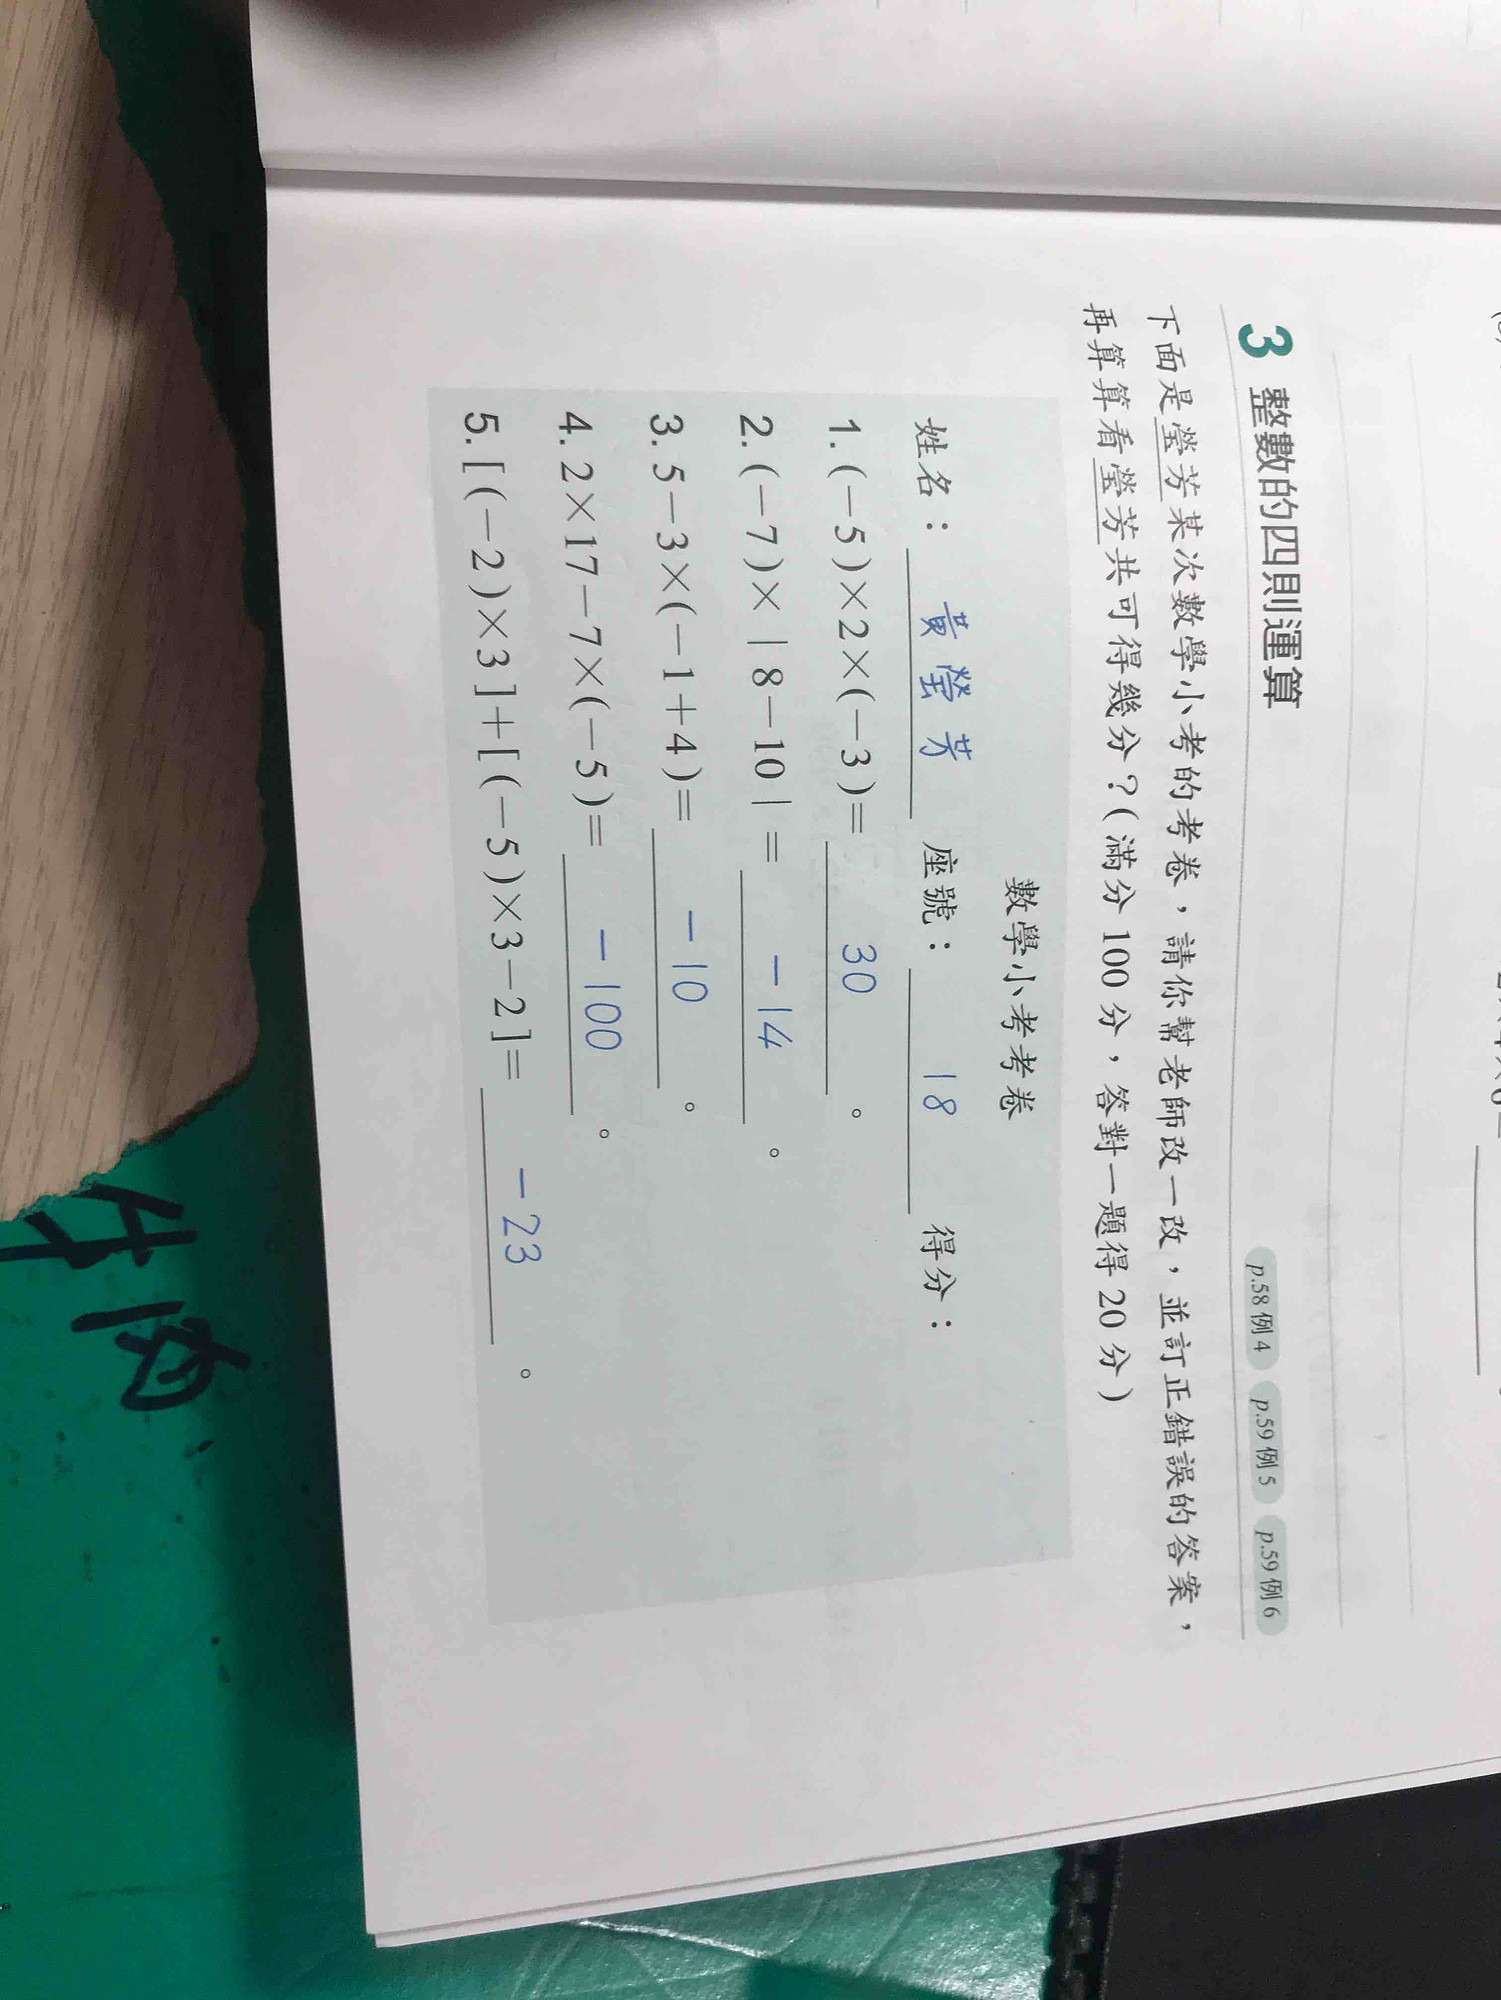 3 整數的四則運算 p.58 例4 p.59 例5 p.59 例6
下面是瑩芳某次數學小考的考卷，請你幫老師改一改，並訂正錯誤的答案，
再算算看瑩芳共可得幾分？(滿分 100 分，答對一題得 20 分)
數學小考考卷
姓名：黃瑩芳 座號：18 得分：
1. (-5)×2×(-3)= 30 。
2. (-7)×|8-10|= -14 。
3. 5-3×(-1+4)= -10 。
4. 2×17-7×(-5)= -100 。
5. [(-2)×3]+[(-5)×3-2]= -23 。